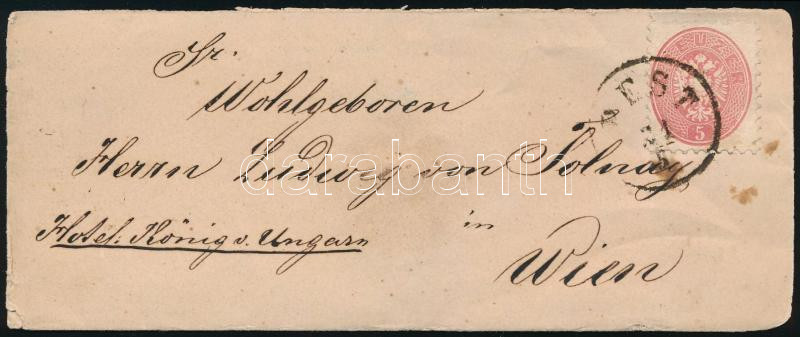 Sr.
Wohlgeboren
Herrn Ludwig von Tolnay
Hotel: König v. Ungarn
in
Wien
PEST
5
darabanth.com